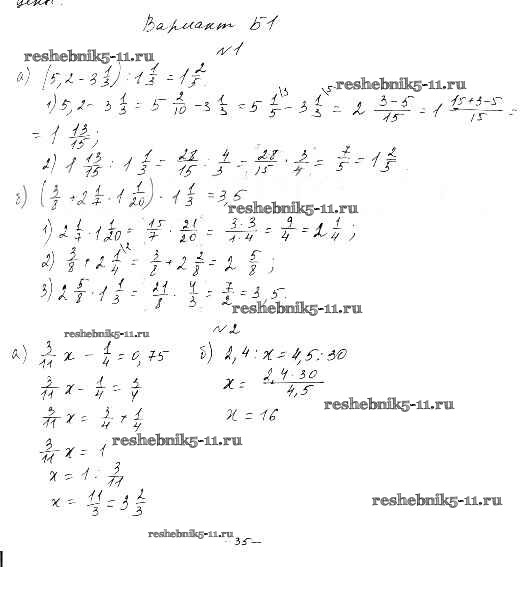 Вариант Б1
№1
reshebnik5-11.ru
а) (5,2 - 3 1/3) : 1 1/3 = 1 2/5
reshebnik5-11.ru
1) 5,2 - 3 1/3 = 5 2/10 - 3 1/3 = 5 1/5 \3 - 3 1/3 \5 = 2 (3-5)/15 = 1 (15+3-5)/15 =
= 1 13/15;
2) 1 13/15 : 1 1/3 = 28/15 : 4/3 = 28/15 · 3/4 = 7/5 = 1 2/5
б) (3/8 + 2 1/7 · 1 1/20) · 1 1/3 = 3,5
reshebnik5-11.ru
1) 2 1/7 · 1 1/20 = 15/7 · 21/20 = (3·3)/(1·4) = 9/4 = 2 1/4;
2) 3/8 + 2 1/4 \2 = 3/8 + 2 2/8 = 2 5/8;
3) 2 5/8 · 1 1/3 = 21/8 · 4/3 = 7/2 = 3,5.
reshebnik5-11.ru
№2
reshebnik5-11.ru
а) 3/11 x - 1/4 = 0,75
3/11 x - 1/4 = 3/4
3/11 x = 3/4 + 1/4
3/11 x = 1
x = 1 : 3/11
x = 11/3 = 3 2/3
б) 2,4 : x = 4,5 : 30
x = (2,4·30)/4,5
x = 16
reshebnik5-11.ru
reshebnik5-11.ru
reshebnik5-11.ru
reshebnik5-11.ru
- 35 -